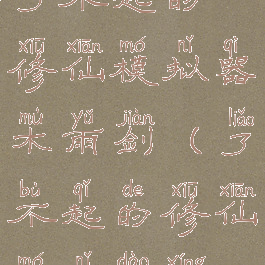 了不起的
xiū xiān mó nǐ qì
修仙模拟器
mù yǔ jiàn liǎo
木雨剑（了
bù qǐ de xiū xiān
不起的修仙
mó nǐ dào xíng